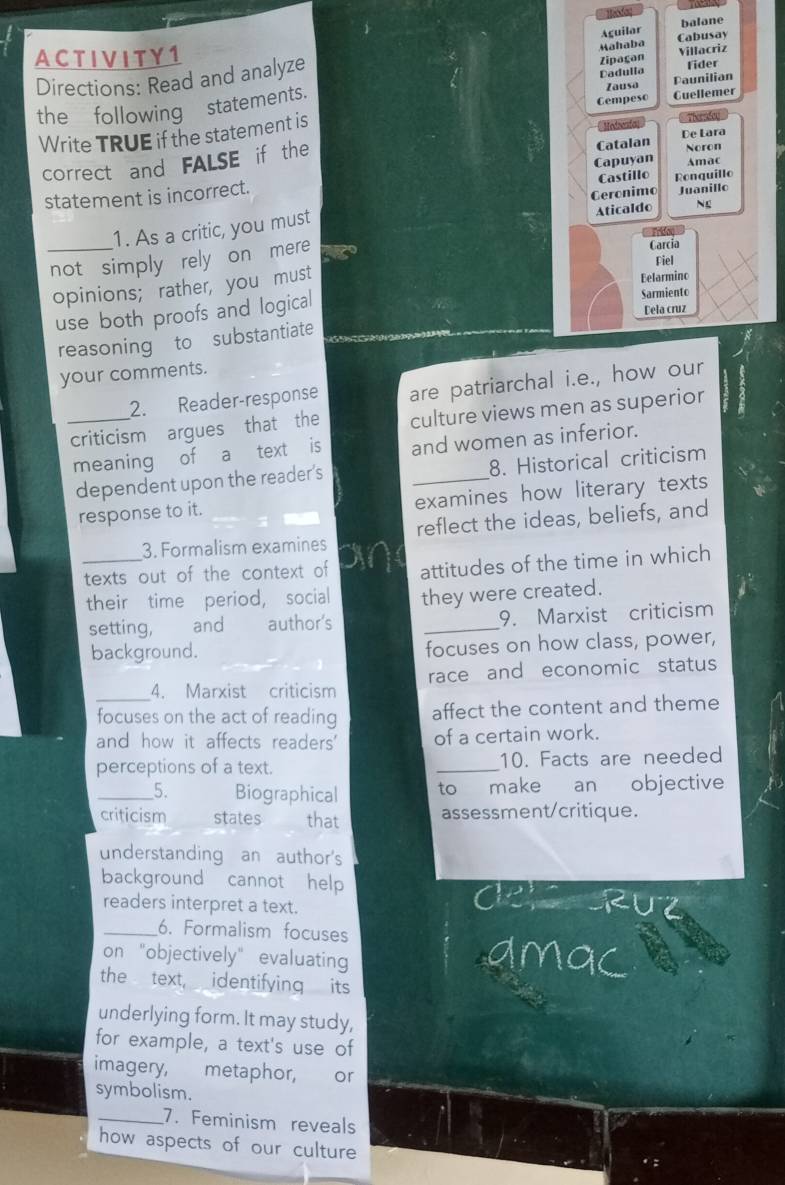 ACTIVITY1
Directions: Read and analyze
the following statements.
Write TRUE if the statement is
correct and FALSE if the
statement is incorrect.
______1. As a critic, you must
not simply rely on mere
opinions; rather, you must
use both proofs and logical
reasoning to substantiate
your comments.
______2. Reader-response
criticism argues that the
meaning of a text is
dependent upon the reader's
response to it.
______3. Formalism examines
texts out of the context of
their time period, social
setting, and author's
background.
______4. Marxist criticism
focuses on the act of reading
and how it affects readers'
perceptions of a text.
______5. Biographical
criticism states that
understanding an author's
background cannot help
readers interpret a text.
______6. Formalism focuses
on "objectively" evaluating
the text, identifying its
underlying form. It may study,
for example, a text's use of
imagery, metaphor, or
symbolism.
______7. Feminism reveals
how aspects of our culture
are patriarchal i.e., how our
culture views men as superior
and women as inferior.
______8. Historical criticism
examines how literary texts
reflect the ideas, beliefs, and
attitudes of the time in which
they were created.
______9. Marxist criticism
focuses on how class, power,
race and economic status
affect the content and theme
of a certain work.
______10. Facts are needed
to make an objective
assessment/critique.
Monday
Aguilar
Mahaba
Zipagan
Dadulla
Zausa
Cempeso
balane
Cabusay
Villacriz
Fider
Daunilian
Guellemer
Wednesday
Catalan
Capuyan
Castillo
Geronimo
Aticaldo
Thursday
De Lara
Noron
Amac
Ronquillo
Juanillo
Ng
Friday
Garcia
Fiel
Belarmino
Sarmiento
Dela cruz
amac